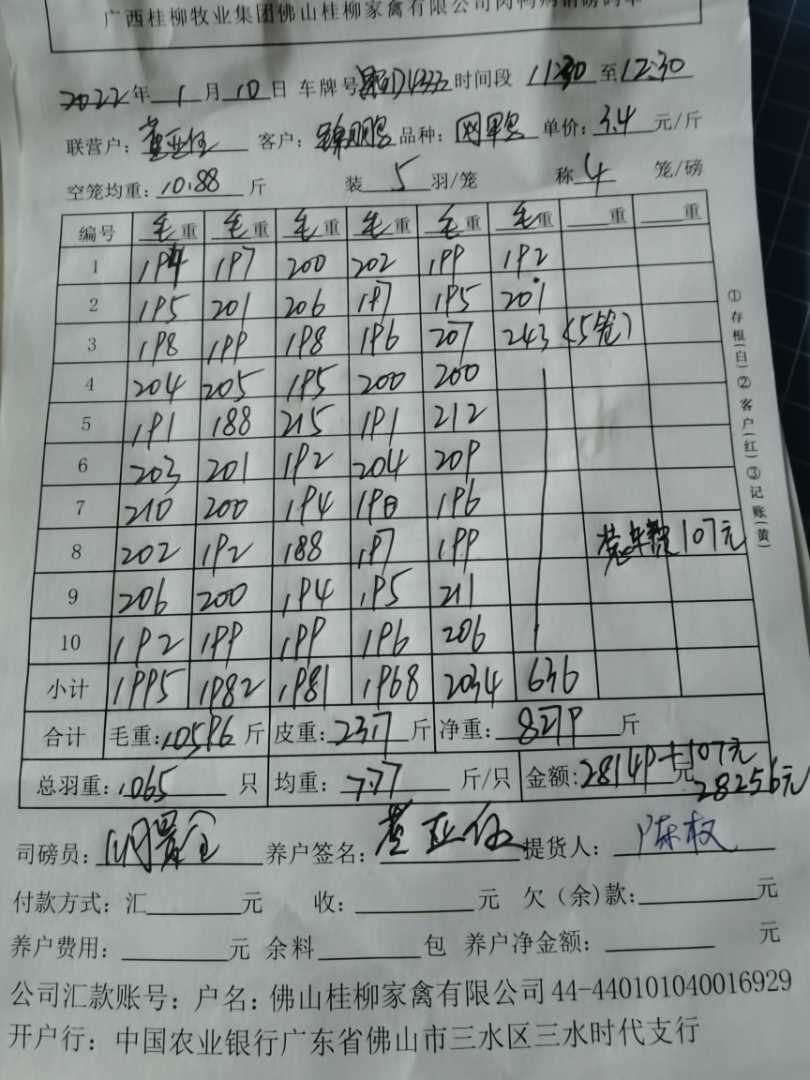 广西桂柳牧业集团佛山桂柳家禽有限公司肉鸭购销磅码单
2022年 1月 10日 车牌号 时间段 11:30 至 12:30
联营户：董亚伍 客户： 品种： 单价：3.4 元/斤
空笼均重：10.88 斤 装 5 羽/笼 称 4 笼/磅
编号 毛重 毛重 毛重 毛重 毛重 毛重 重 重
1 194 197 200 202 199 192
2 195 201 206 197 195 201
3 198 199 198 196 207 243 (5笼)
4 204 205 195 200 200
5 191 188 215 191 212
6 203 201 192 204 209
7 210 200 194 190 196
8 202 192 188 197 199 107元
9 206 200 194 195 211
10 192 199 199 196 206
小计 1995 1982 1981 1968 2034 636
合计 毛重：10596 斤 皮重：2317 斤 净重：8279 斤
总羽重：1065 只 均重：7.77 斤/只 金额：28149+107元 元
28256元
司磅员： 养户签名：董亚伍 提货人：陈权
付款方式：汇 元 收： 元 欠（余）款： 元
养户费用： 元 余料 包 养户净金额： 元
公司汇款账号：户名：佛山桂柳家禽有限公司 44-440101040016929
开户行：中国农业银行广东省佛山市三水区三水时代支行
①存根(白)②客户(红)③记账(黄)